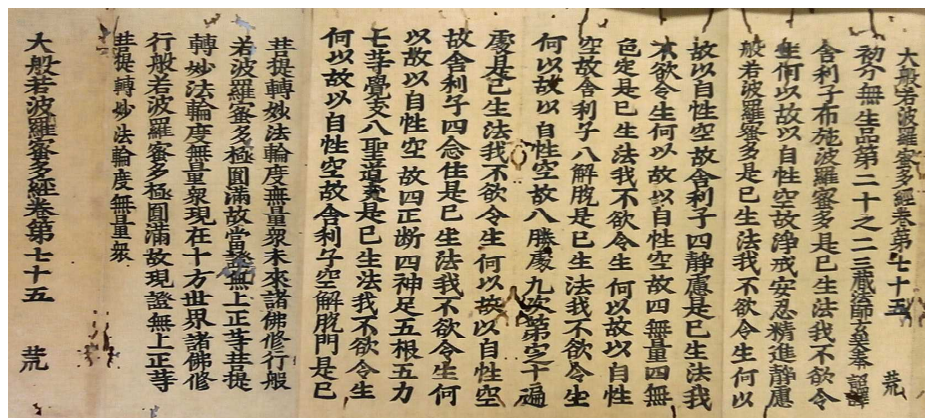 大般若波羅蜜多經卷第七十五 荒
初分無生品第二十之二三藏法師玄奘奉 詔譯
舍利子布施波羅蜜多是已生法我不欲令
生何以故以自性空故淨戒安忍精進靜慮
般若波羅蜜多是已生法我不欲令生何以
故以自性空故舍利子四靜慮是已生法我
不欲令生何以故以自性空故四無量四無
色定是已生法我不欲令生何以故以自性
空故舍利子八解脫是已生法我不欲令生
何以故以自性空故八勝處九次第定十遍
處是已生法我不欲令生何以故以自性空
故舍利子四念住是已生法我不欲令生何
以故以自性空故四正断四神足五根五力
七等覺支八聖道支是已生法我不欲令生
何以故以自性空故舍利子空解脫門是已
菩提轉妙法輪度無量衆未來諸佛修行般
若波羅蜜多極圓滿故當證無上正等菩提
轉妙法輪度無量衆現在十方世界諸佛修
行般若波羅蜜多極圓滿故現證無上正等
菩提轉妙法輪度無量衆
大般若波羅蜜多經卷第七十五 荒